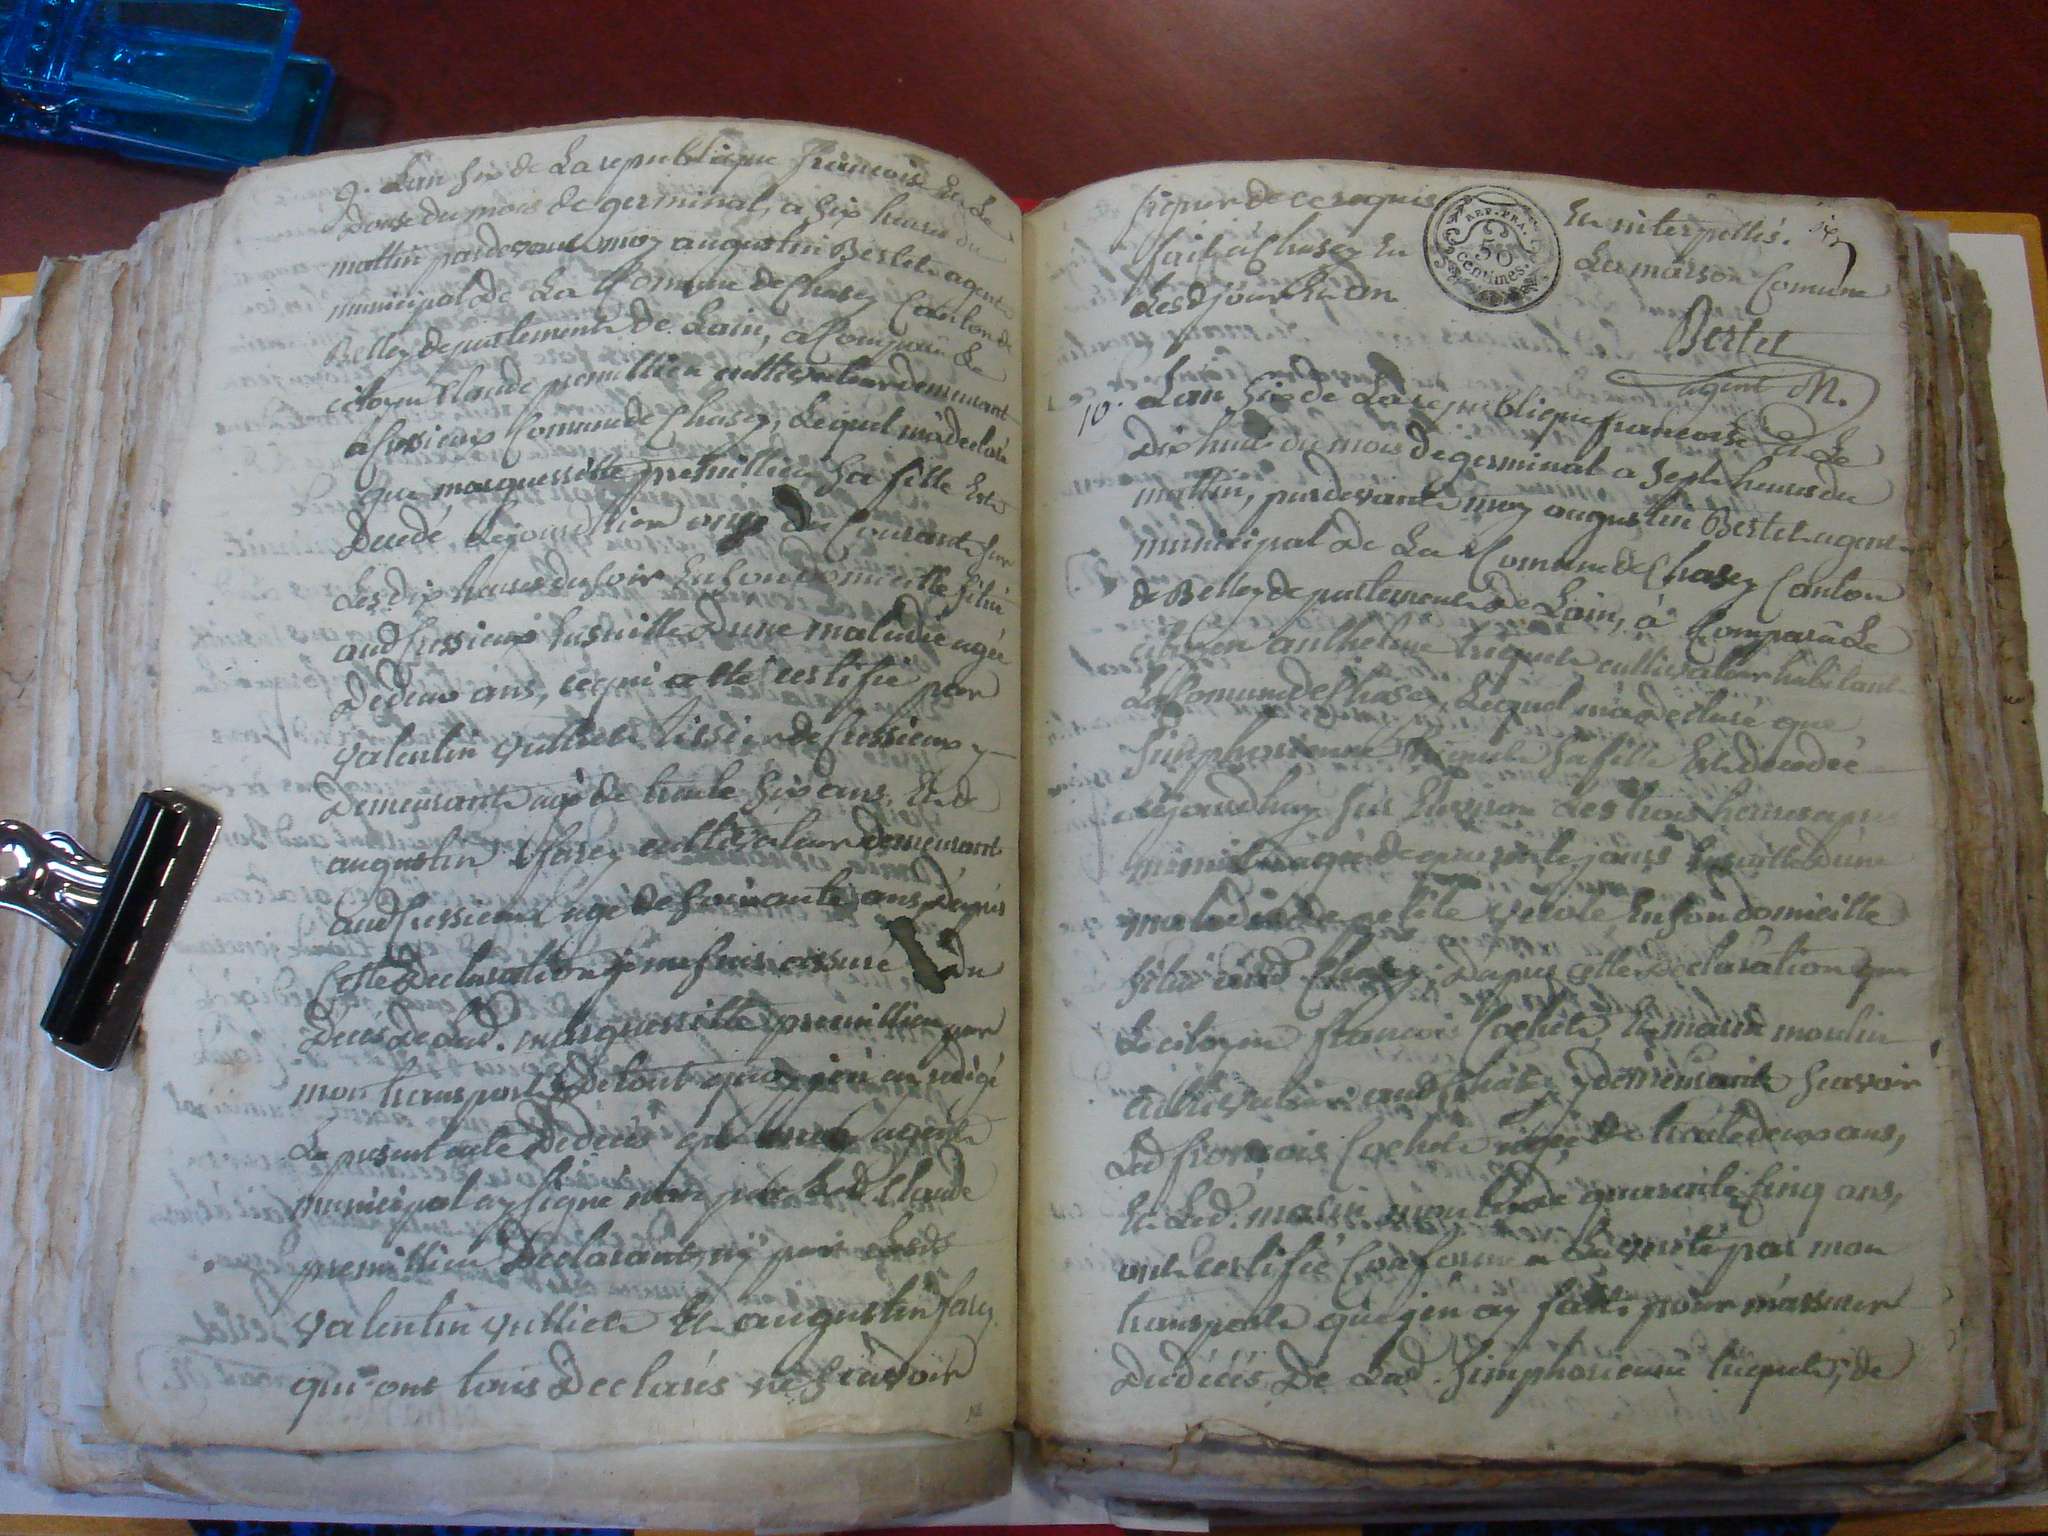 9. Lan six de La republique francoise Et Le
douse du mois de germinal, a six heures du
mattin pardevant moy augustin Bertet agent
municipal de La Comune de Chasey Canton de
Belley departement de Lain, a Comparu Le
citoyen Claude premillieu cultivateur demeurant
a Cressieux Comune de Chasey, Lequel m'a declaré
que marguerritte premillieu sa fille Est
Decedé Le jourdhier onze du Courant sur
Les dix heures du soir En son domicille situé
aud Cressieux Ensuitte d'une maladie agée
De deux ans, ce qui a été certifié par
valentin vulliet tissier de Cressieux y
Demeurant agé de trente six ans, Et d
augustin Chasey cultivateur demeurant
aud Cressieux age de soixante ans, Dapres
Cette Declaration je me suis assuré du
Deces de Lad. marguerritte premillieu par
mon transport, De tout quoy j'en ai redigé
Le present acte De deces que moy agent
municipal ay signé non par Led. Claude
premillieu Declarant, ny par Lesds
valentin vulliet Et augustin
qui ont tous Declarés ne scavoir
signer de ce requis Et interpellés.
fait a Chasey En La maison Comune
Lesd jour Et an
Bertet
agent M.
REP. FRA.
50
centimes.
10. Lan six de La republique francoise Et Le
Dix huit du mois de germinal a Sept heures du
mattin, pardevant moy augustin Bertet agent
municipal de La Comune de Chasey Canton
de Belley departement de Lain, a Comparu Le
citoyen anthelme triquet cultivateur habitant
La Comune de Chasey, Lequel m'a declaré que
Simphorienne triquet sa fille Est decedée
cejourdhuy sur Environ Les trois heures apres
minuit agée de quarante jours Ensuitte d'une
maladie de petite verole En son domicille
situé aud Chasey; Dapres cette declaration que
Le citoyen francois Cochet, Et marin moulin
cultivateurs aud Chasey y demeurant scavoir
Led francois Cochet agé de trente deux ans,
Et Led. marin moulin de quarente Cinq ans,
ont certifié Conforme a La verité par mon
transport que j'en ay fait pour m'assurer
Du deces De Lad. Simphorienne triquet; de